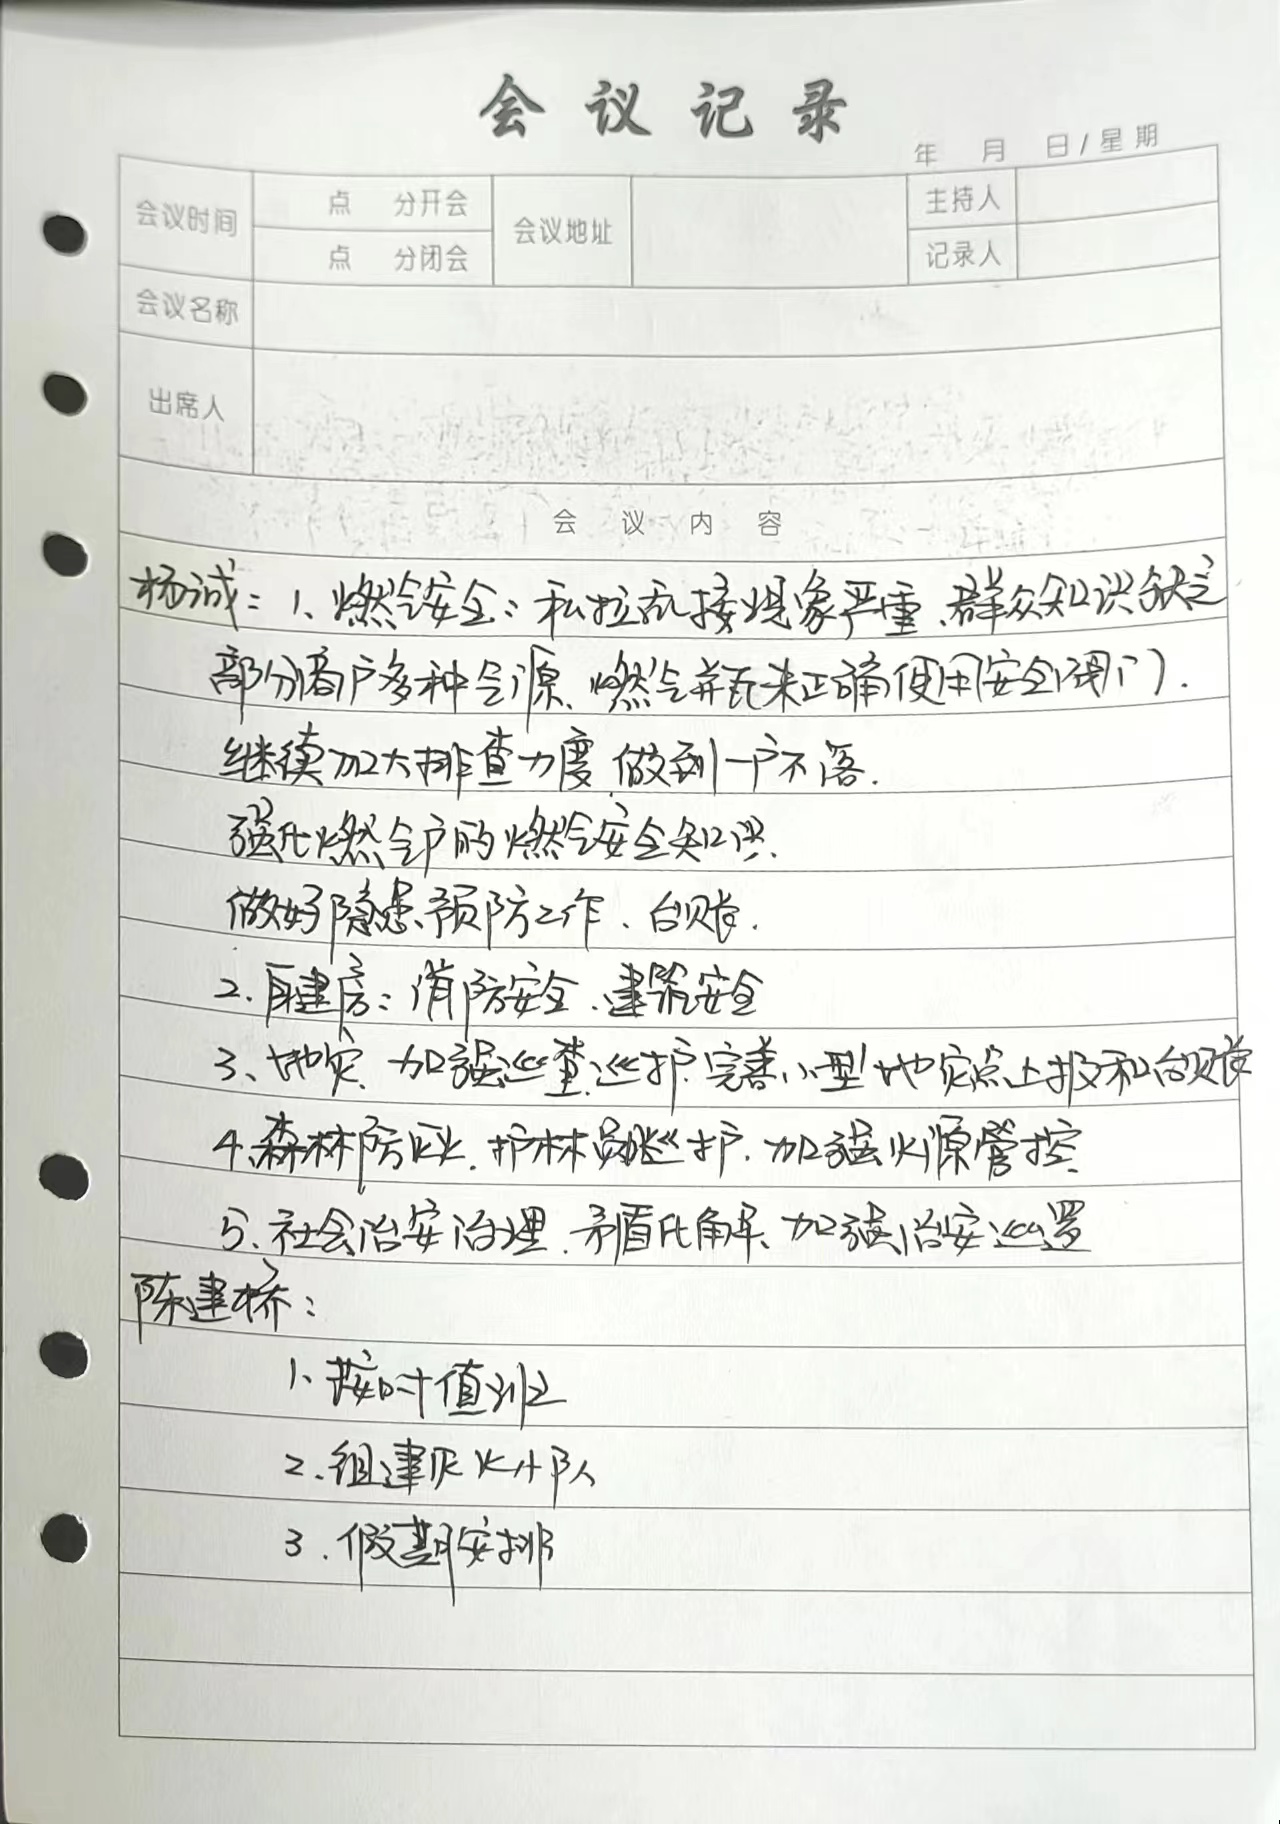 会议记录
年 月 日/星期
会议时间 点 分开会 会议地址 主持人
点 分闭会 记录人
会议名称
出席人
会议内容
杨诚：1、燃气安全：私拉乱接现象严重、群众知识缺乏
部分商户多种气源、燃气并瓦未正确使用安全阀门.
继续加大排查力度 做到一户不落.
强化燃气户的燃气安全知识.
做好隐患预防工作、台账.
2.自建房：消防安全、建筑安全
3、地灾、加强巡查巡护 完善小型地灾点上报和台账
4、森林防火、护林员巡护、加强火源管控
5、社会治安治理、矛盾化解、加强治安巡逻
陈建桥：
1、按时值班
2、组建灭火小队
3.假期安排